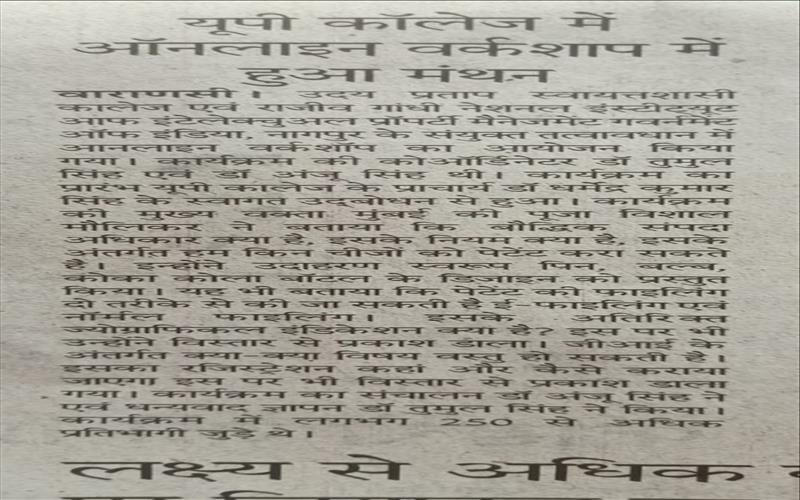 यूपी कॉलेज में
ऑनलाइन वर्कशाप में
हुआ मंथन
वाराणसी। उदय प्रताप स्वायत्तशासी
कालेज एवं राजीव गांधी नेशनल इंस्टीट्यूट
आफ इंटेलेक्चुअल प्रॉपर्टी मैनेजमेंट गवर्नमेंट
ऑफ इंडिया, नागपुर के संयुक्त तत्वावधान में
आनलाइन वर्कशॉप का आयोजन किया
गया। कार्यक्रम की कोऑर्डिनेटर डॉ तुमुल
सिंह एवं डॉ अंजू सिंह थी। कार्यक्रम का
प्रारंभ यूपी कालेज के प्राचार्य डॉ धर्मेंद्र कुमार
सिंह के स्वागत उद्बोधन से हुआ। कार्यक्रम
की मुख्य वक्ता मुंबई की पूजा विशाल
मौलिकर ने बताया कि बौद्धिक संपदा
अधिकार क्या है, इसके नियम क्या है, इसके
अंतर्गत हम किन चीजों को पेटेंट करा सकते
है। इन्होंने उदाहरण स्वरूप पिन, बल्ब,
कोका कोला बॉटल के डिजाइन को प्रस्तुत
किया। यह भी बताया कि पेटेंट की फाइलिंग
दो तरीके से की जा सकती है ई फाइलिंग एवं
नॉर्मल फाइलिंग। इसके अतिरिक्त
ज्योग्राफिकल इंडिकेशन क्या है? इस पर भी
उन्होंने विस्तार से प्रकाश डाला। जीआई के
अंतर्गत क्या-क्या विषय वस्तु हो सकती है।
इसका रजिस्ट्रेशन कहां और कैसे कराया
जाएगा इस पर भी विस्तार से प्रकाश डाला
गया। कार्यक्रम का संचालन डॉ अंजू सिंह ने
एवं धन्यवाद ज्ञापन डॉ तुमुल सिंह ने किया।
कार्यक्रम में लगभग 250 से अधिक
प्रतिभागी जुड़े थे।
लक्ष्य से अधिक